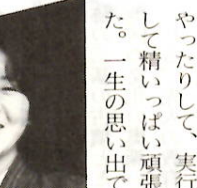 やったりして、実行
して精いっぱい頑張
た。一生の思い出で